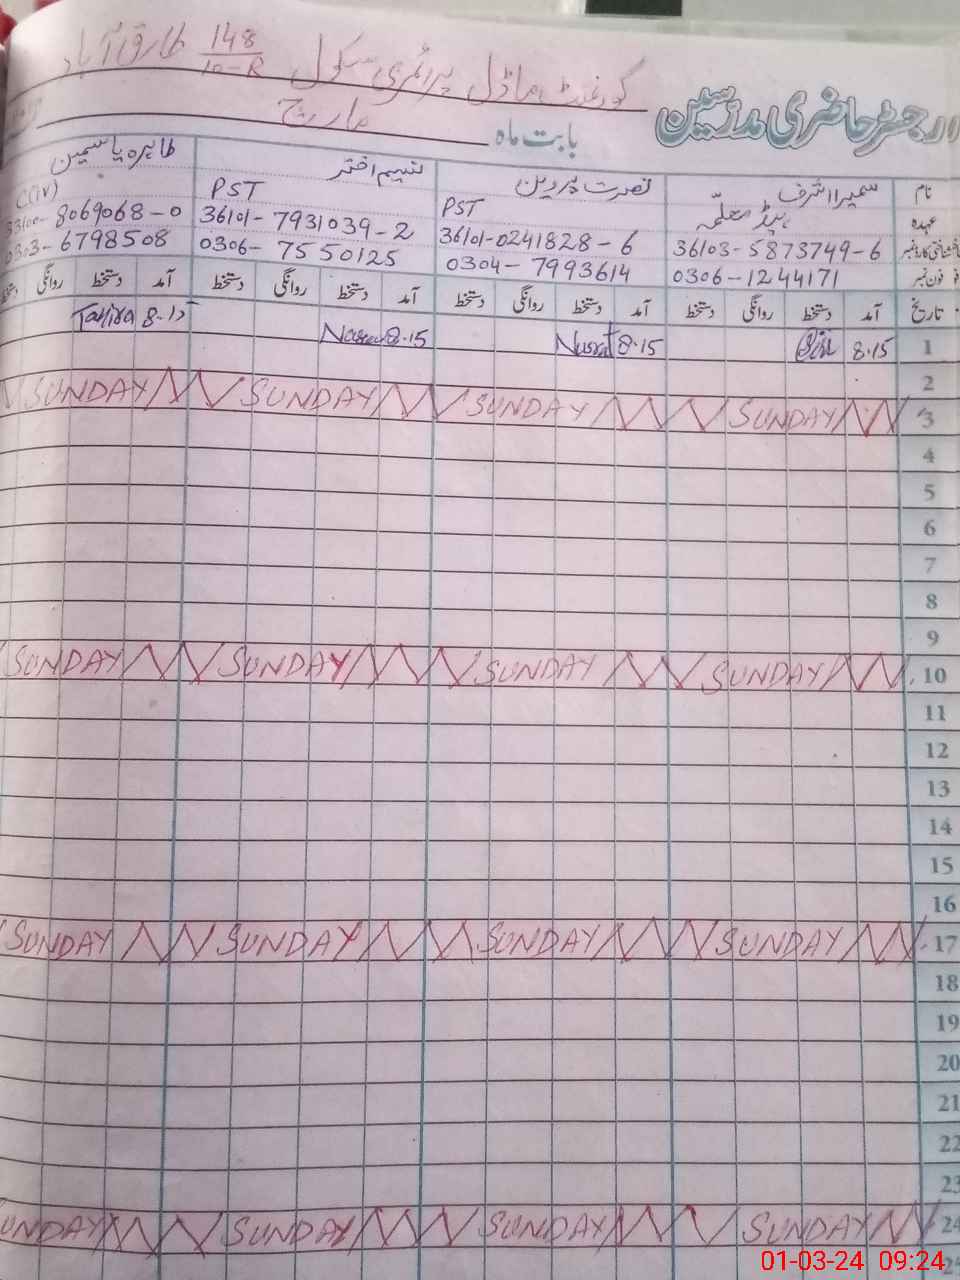 گورنمنٹ ماڈل پرائمری سکول 148/10-R طارق آباد
رجسٹر حاضری مدرسین
بابت ماہ مارچ
نام سمیرا اشرف نصرت پروین نسیم اختر طاہرہ یاسمین
عہدہ ہیڈ معلمہ PST PST C(IV)
شناختی کارڈ نمبر 36103-5873749-6 36101-0241828-6 36101-7931039-2 8069068-0
فون نمبر 0306-1244171 0304-7993614 0306-7550125 0303-6798508
تاریخ آمد دستخط روانگی دستخط آمد دستخط روانگی دستخط آمد دستخط روانگی دستخط آمد دستخط روانگی دستخط
1 8.15 8.15 Nusrat 8.15 8.15 Tahira
2
3 SUNDAY SUNDAY SUNDAY SUNDAY
4
5
6
7
8
9
10 SUNDAY SUNDAY SUNDAY SUNDAY
11
12
13
14
15
16
17 SUNDAY SUNDAY SUNDAY SUNDAY
18
19
20
21
22
23
24 SUNDAY SUNDAY SUNDAY SUNDAY
25
01-03-24 09:24